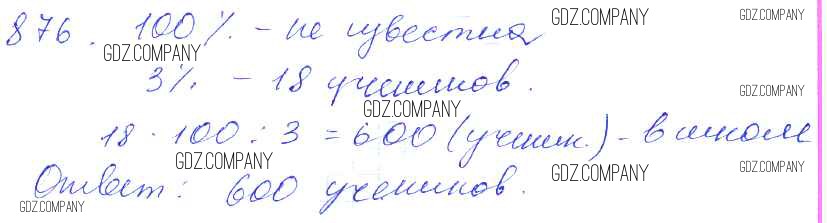 876. 100% - не известна
3% - 18 учеников.
18 · 100 : 3 = 600 (ученик.) - в школе
Ответ: 600 учеников.
GDZ.COMPANY
GDZ.COMPANY
GDZ.COMPANY
GDZ.COMPANY
GDZ.COMPANY
GDZ.COMPANY
GDZ.COMPANY
GDZ.COMPANY
GDZ.COMPANY
GDZ.COMPANY
GDZ.COMPANY